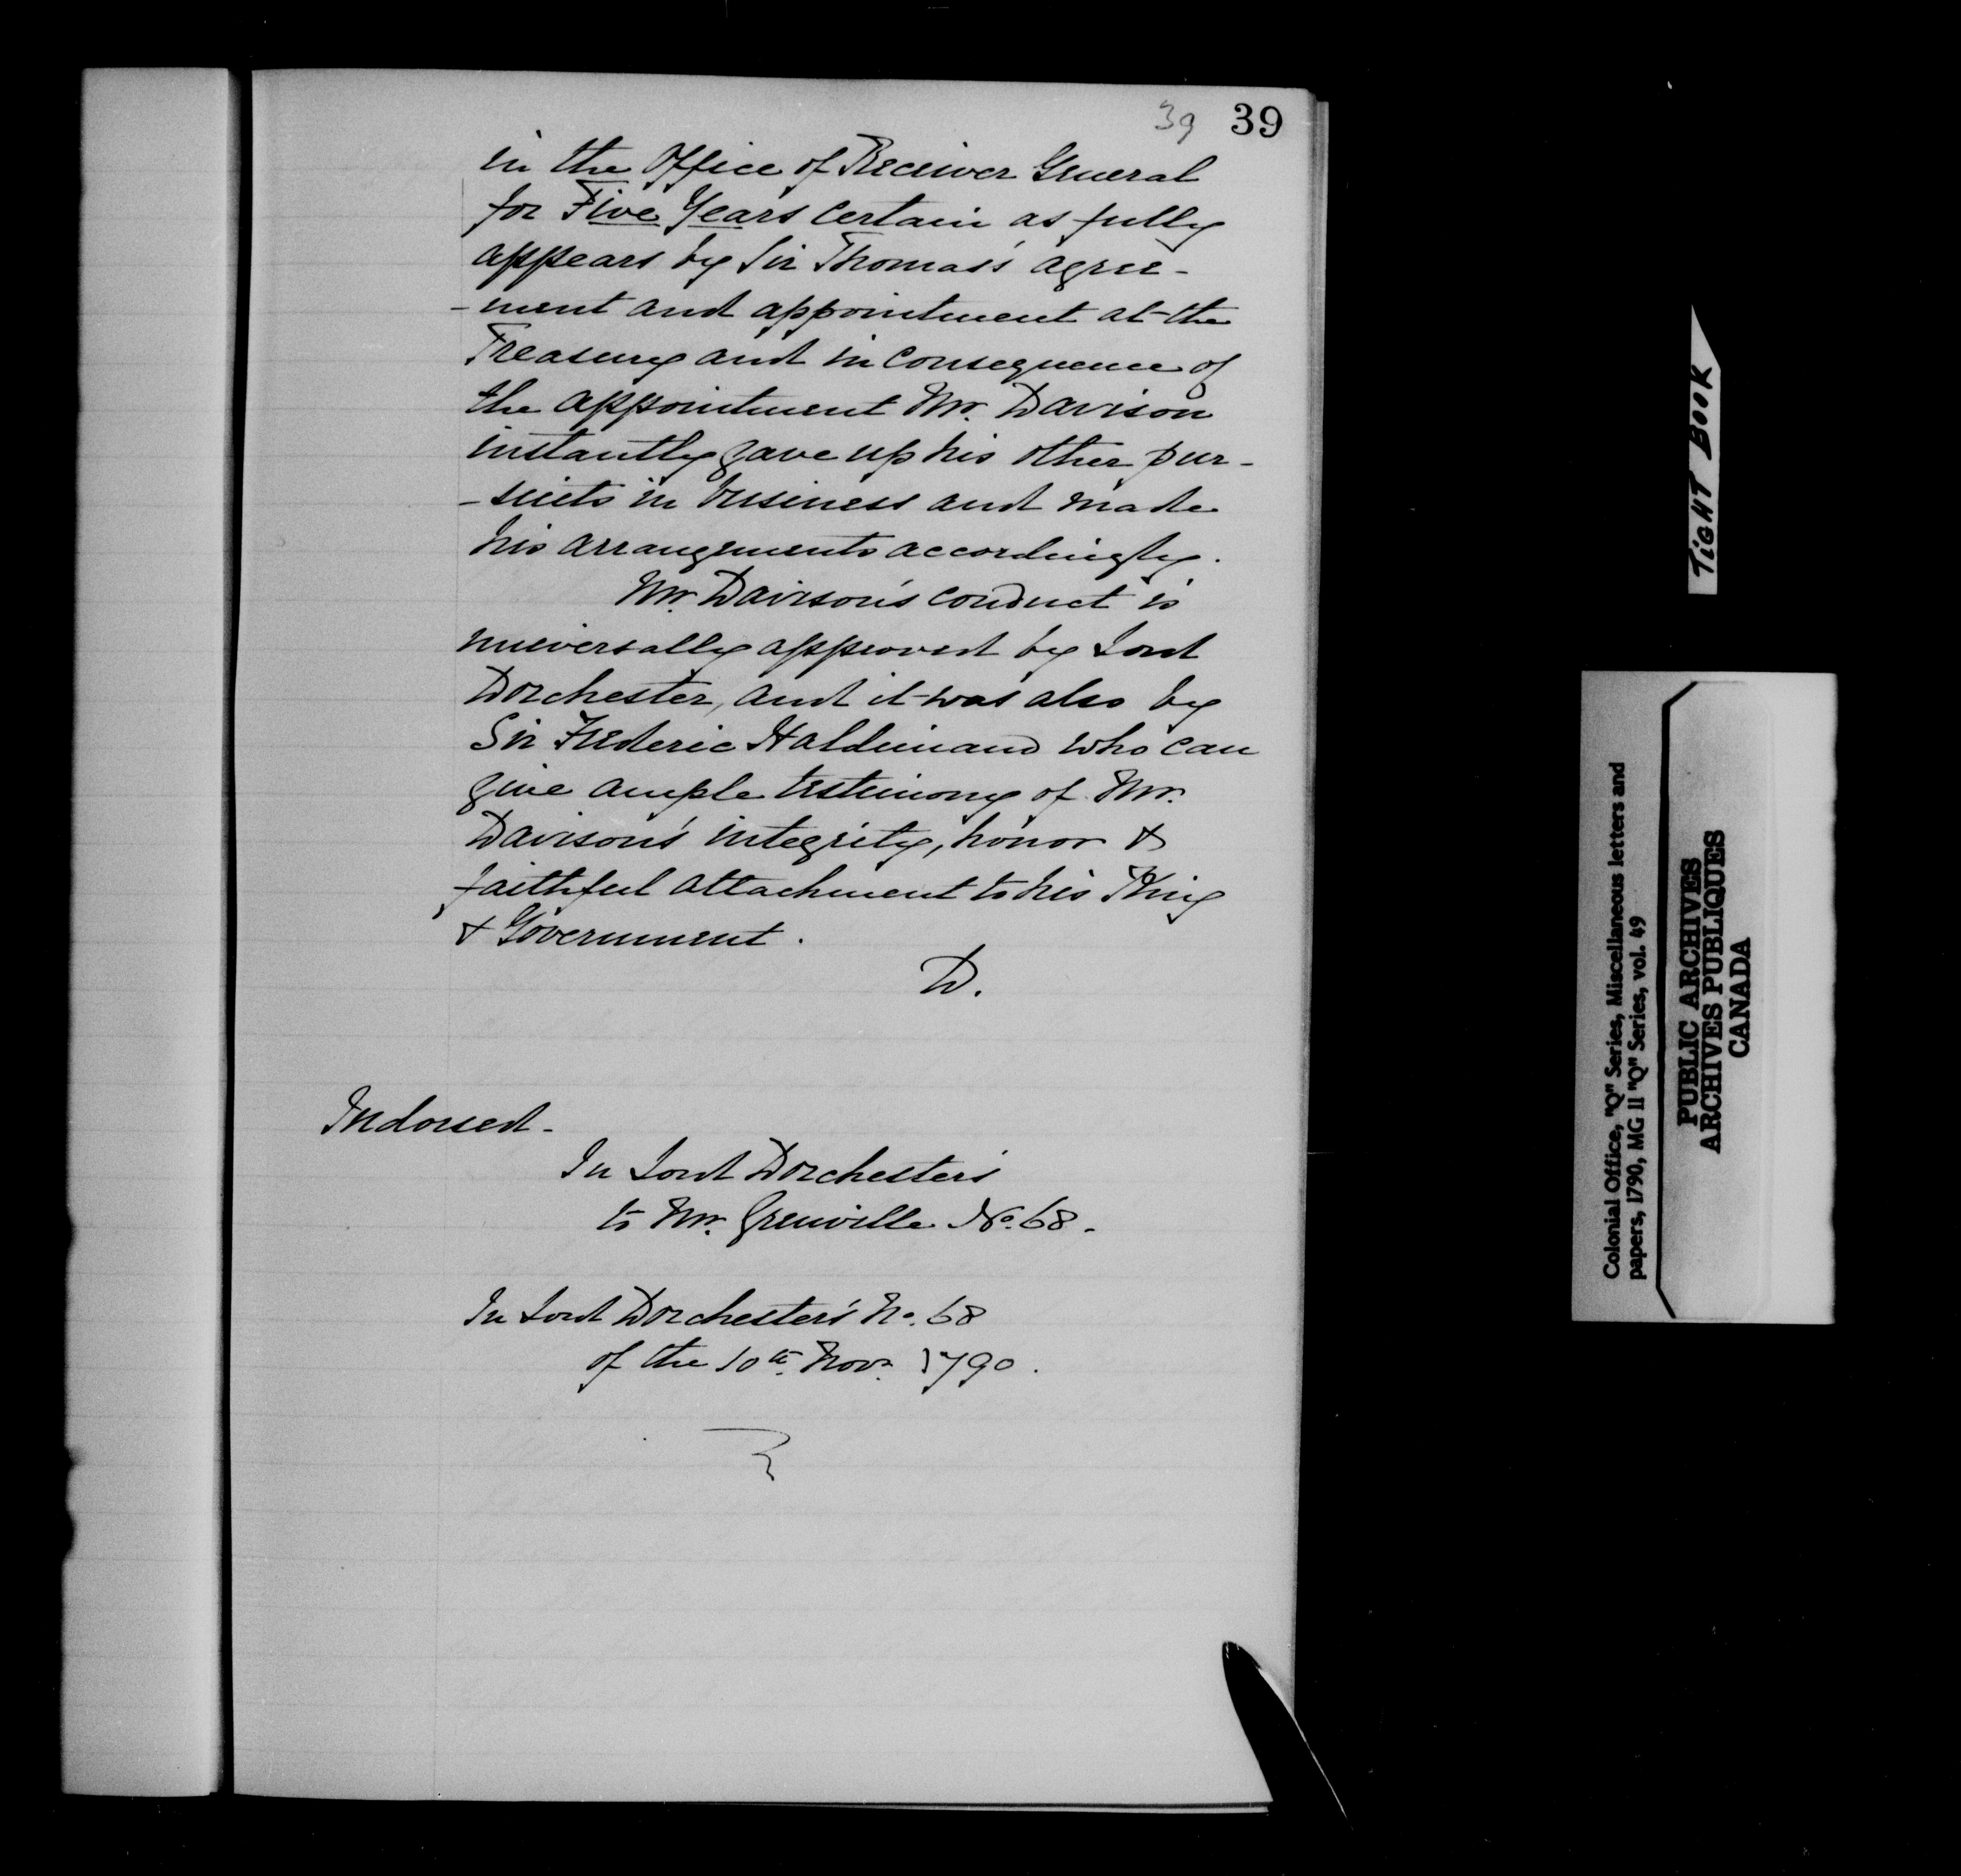 39 39
in the Office of Receiver General
for Five Years certain as fully
appears by Sir Thomas's agree-
-ment and appointment at the
Treasury and in consequence of
the appointment Mr. Davison
instantly gave up his other pur-
-suits in business and made
his arrangements accordingly.
Mr. Davison's conduct is
universally approved by Lord
Dorchester, and it was also by
Sir Frederic Haldimand who can
give ample testimony of Mr.
Davison's integrity, honor &
faithful attachment to his King
& Government.
D.
Indorsed-
In Lord Dorchester's
to Mr. Grenville No. 68.
In Lord Dorchester's No. 68
of the 10th Novr. 1790.
TIGHT BOOK
Colonial Office, "Q" Series, Miscellaneous letters and
papers, 1790, MG 11 "Q" Series, vol. 49
PUBLIC ARCHIVES
ARCHIVES PUBLIQUES
CANADA